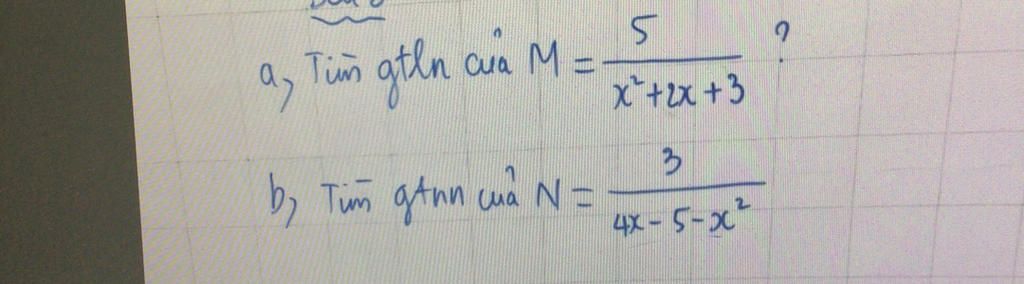 a, Tìm gtln của M = 5 / (x² + 2x + 3) ?
b, Tìm gtnn của N = 3 / (4x - 5 - x²)